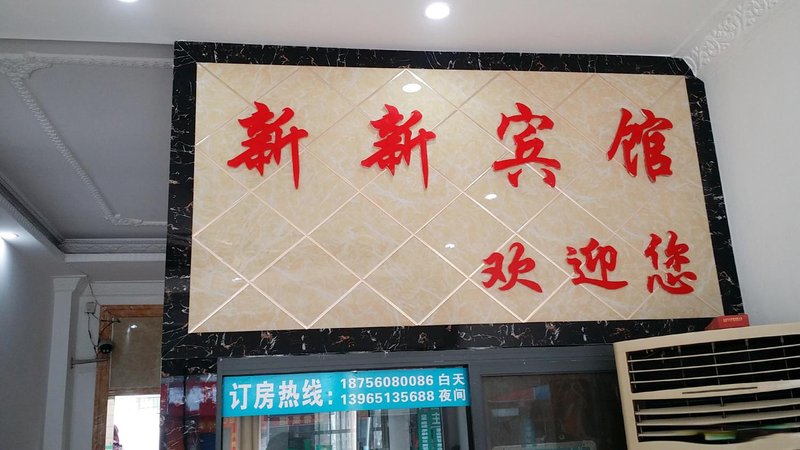 新新宾馆
欢迎您
订房热线：18756080086 白天
13965135688 夜间